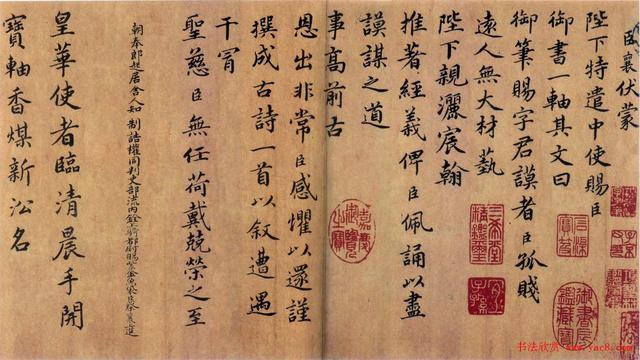 臣襄伏蒙
陛下特遣中使賜臣
御書一軸其文曰
御筆賜字君謨者臣孤賤
遠人無大材藝
陛下親灑宸翰
推著經義俾臣佩誦以盡
謨謀之道
事高前古
恩出非常臣感懼以還謹
撰成古詩一首以叙遭遇
干冒
聖慈臣無任荷戴兢榮之至
朝奉郎起居舍人知制誥權同判吏部流內銓上騎都尉賜紫金魚袋臣蔡襄上進
皇華使者臨清晨手開
寶軸香煤新沿名
嘉慶御覽之寶
三希堂精鑑璽
宜子孫
書法欣賞 www.yac8.com